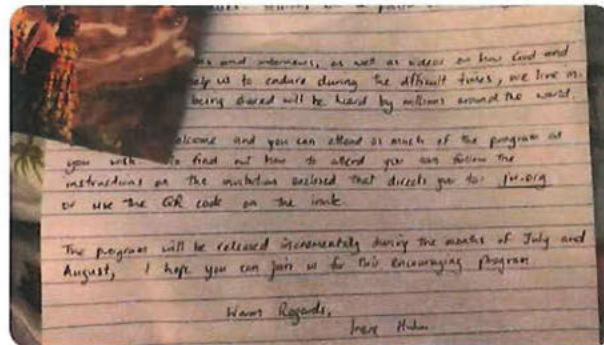 and interviews, as well as videos on how God and
help us to endure during the difficult times, we live in.
being shared will be heard by millions around the world.
welcome and you can attend as much of the program as
you wish. To find out how to attend you can follow the
instructions on the invitation enclosed that directs you to: jw.org
or use the QR code on the invite.
The program will be released incrementally during the months of July and
August, I hope you can join us for this encouraging program
Warm Regards,
Irene